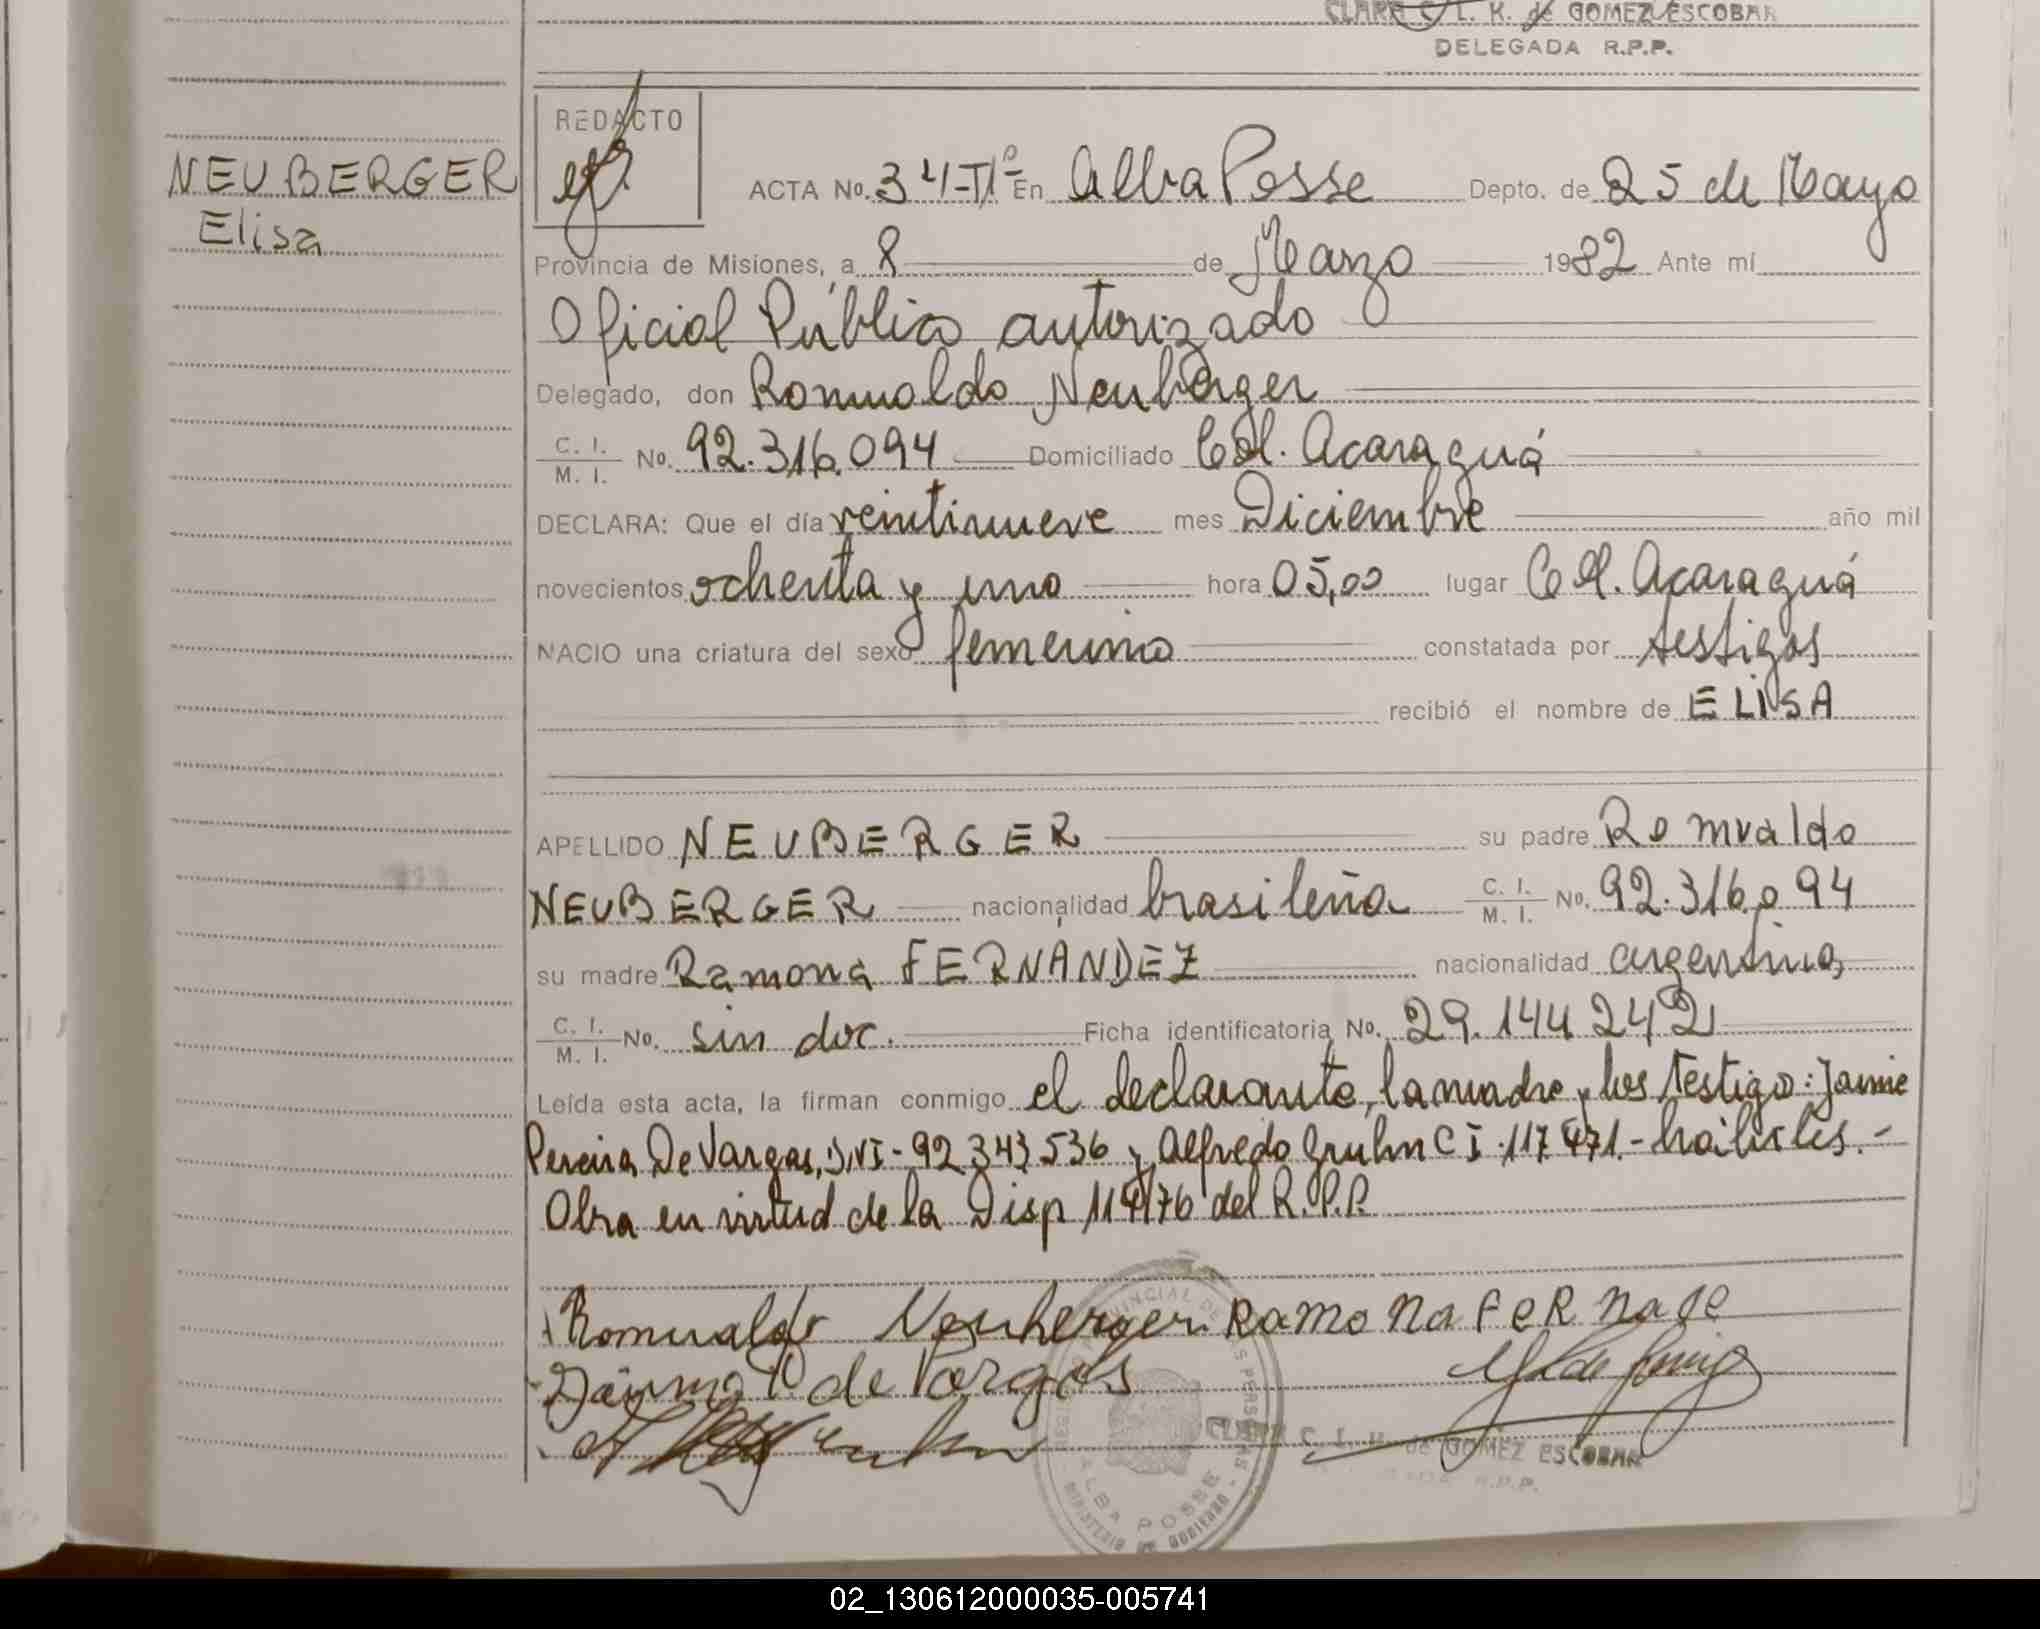 CLARA C. L. K. de GOMEZ ESCOBAR
DELEGADA R.P.P.
NEUBERGER
Elisa
REDACTO
ACTA No. 34-Tº1º En Alba Posse Depto. de 25 de Mayo
Provincia de Misiones, a 8 de Marzo 1982 Ante mí
Oficial Público autorizado
Delegado, don Romualdo Neuberger
C. I. M. I. No. 92.316.094 Domiciliado Col. Acaraguá
DECLARA: Que el día veintinueve mes Diciembre año mil
novecientos ochenta y uno hora 05,00 lugar Col. Acaraguá
NACIO una criatura del sexo femenino constatada por testigos
recibió el nombre de ELISA
APELLIDO NEUBERGER su padre Romualdo
NEUBERGER nacionalidad brasileña C. I. M. I. No. 92.316.094
su madre Ramona FERNANDEZ nacionalidad argentina
C. I. M. I. No. sin doc. Ficha identificatoria No. 29.144.242
Leída esta acta, la firman conmigo el declarante, la madre y los testigo: Jaime
Pereira De Vargas, DNI-92.343.536 y Alfredo Gruhn CI.117.471.- hábiles.-
Obra en virtud de la Disp 114/76 del R.P.P.
Romualdo Neuberger Ramona Fernade
Jaime P. de Vargas
CLARA C. L. K. de GOMEZ ESCOBAR
R.P.P.
ALBA POSSE
MINISTERIO DE GOBIERNO
02_130612000035-005741